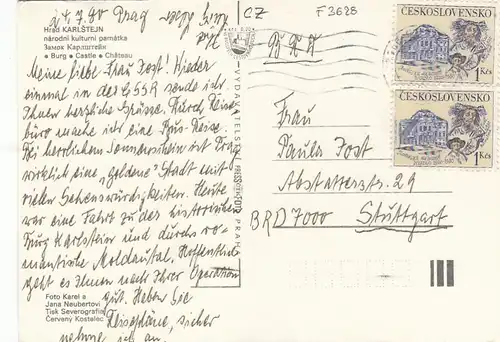 24.7.80 Prag
CZ
F 3628
Hrad KARLŠTEJN
národní kulturní památka
Замок Карлштейн
● Burg ● Castle ● Château
ČESKOSLOVENSKO
1 Kčs
ČESKOSLOVENSKO
1 Kčs
Meine liebe Frau Jost! Wieder
einmal in der ČSSR sende ich
Ihnen herzliche Grüsse. Durch Reise-
büro mache ich eine Bus-Reise.
Bei herrlichem Sonnenschein ist Prag
wirklich eine „goldene" Stadt mit
vielen Sehenswürdigkeiten. Heute
war eine Fahrt zu der historischen
Burg Karlstein und durchs ro-
mantische Moldautal. Hoffentlich
geht es Ihnen nach Ihrer Operation
gut. Haben Sie
Reisepläne, sicher
nehme ich an.
Foto Karel a
Jana Neubertovi
Tisk Severografia
Červený Kostelec
PRAHA
Frau
Paula Jost
Abstatterstr. 29
BRD 7000 Stuttgart